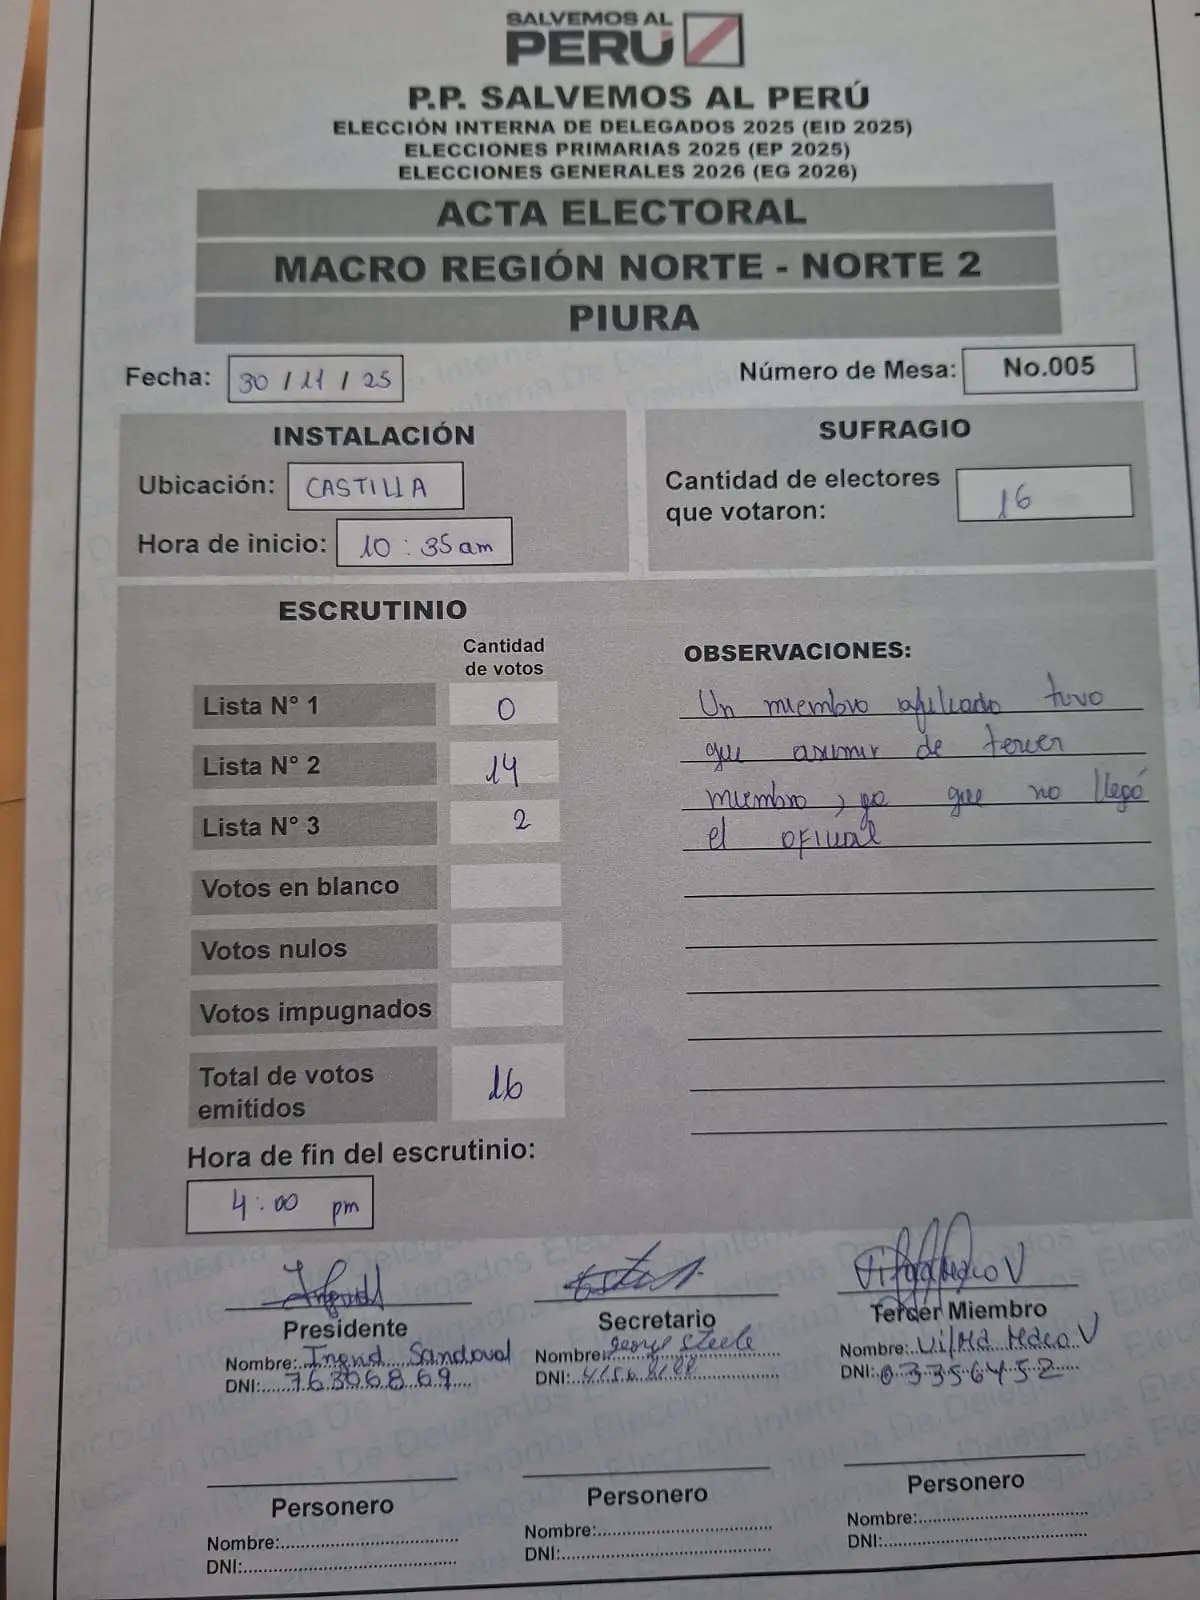 SALVEMOS AL
PERÚ
P.P. SALVEMOS AL PERÚ
ELECCIÓN INTERNA DE DELEGADOS 2025 (EID 2025)
ELECCIONES PRIMARIAS 2025 (EP 2025)
ELECCIONES GENERALES 2026 (EG 2026)
ACTA ELECTORAL
MACRO REGIÓN NORTE - NORTE 2
PIURA
Fecha: 30 / 11 / 25
Número de Mesa: No.005
INSTALACIÓN
Ubicación: CASTILLA
Hora de inicio: 10:35 am
SUFRAGIO
Cantidad de electores
que votaron: 16
ESCRUTINIO
Cantidad
de votos
Lista N° 1 0
Lista N° 2 14
Lista N° 3 2
Votos en blanco
Votos nulos
Votos impugnados
Total de votos
emitidos 16
Hora de fin del escrutinio:
4:00 pm
OBSERVACIONES:
Un miembro afiliado tuvo
que asumir de tercer
miembro, ya que no llegó
el oficial
Presidente
Nombre: Ingrid Sandoval
DNI: 76306869
Secretario
Nombre: Steele
DNI:
Tercer Miembro
Nombre: Vilma Maco V
DNI: 03356452
Personero
Nombre:
DNI:
Personero
Nombre:
DNI:
Personero
Nombre:
DNI: